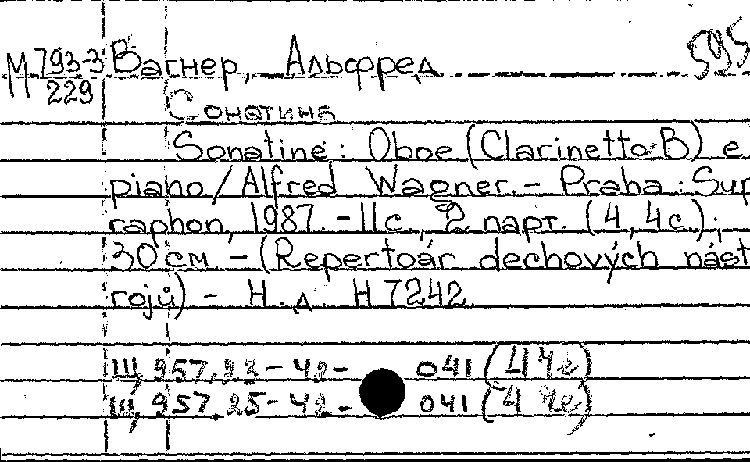 М 793-3 Вагнер, Альфред 595
229
Сонатина
Sonatine : Oboe (Clarinetto B) e
piano / Alfred Wagner. - Praha : Sup
raphon, 1987. - 11 с., 2 парт. (4, 4 с.);
30 см. - (Repertoár dechových nást
rojů) - Н. д. H 7242
Щ 957.23-42- 041 (4
Щ 957.25-42- 041 (4